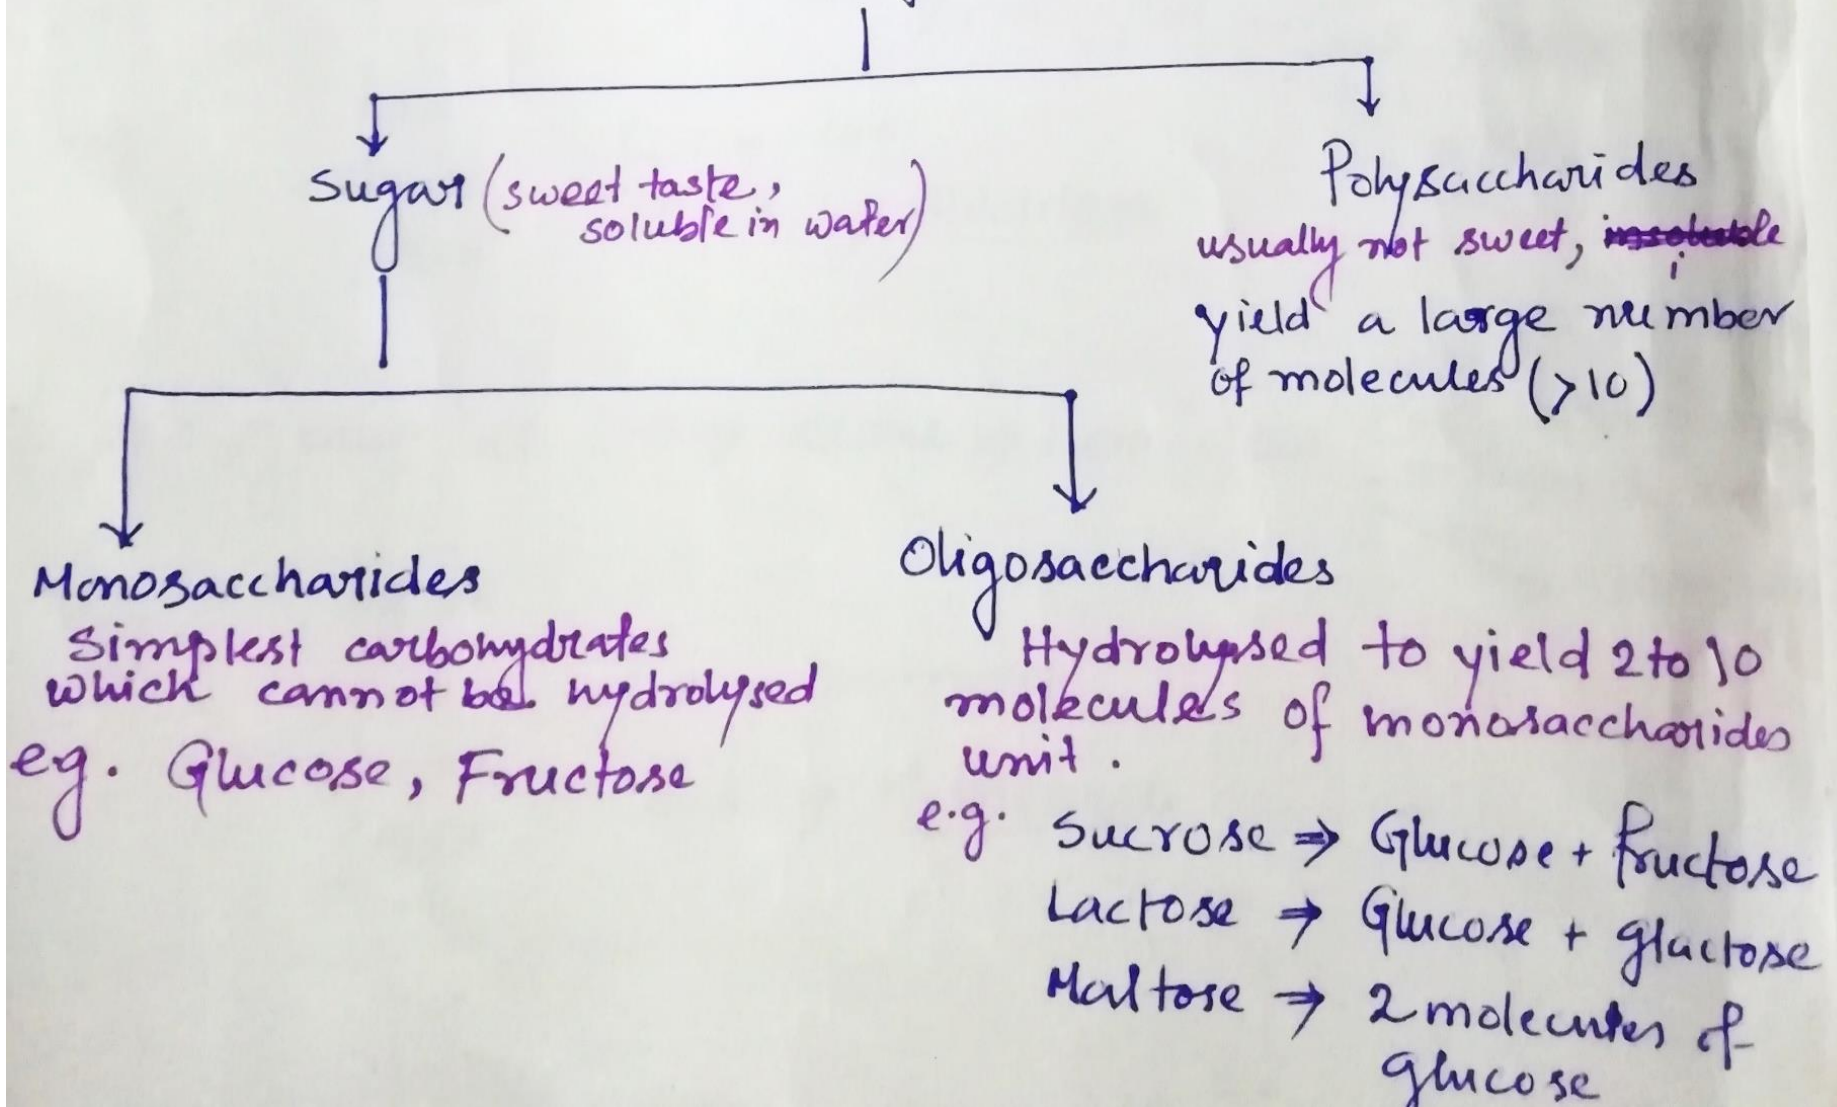 Sugar (sweet taste,
soluble in water)
Polysaccharides
usually not sweet,
yield a large number
of molecules (>10)
Monosaccharides
Simplest carbohydrates
which cannot be hydrolysed
eg. Glucose, Fructose
Oligosaccharides
Hydrolysed to yield 2 to 10
molecules of monosaccharides
unit.
e.g. Sucrose ⇒ Glucose + fructose
Lactose ⇒ Glucose + glactose
Maltose ⇒ 2 molecules of
glucose